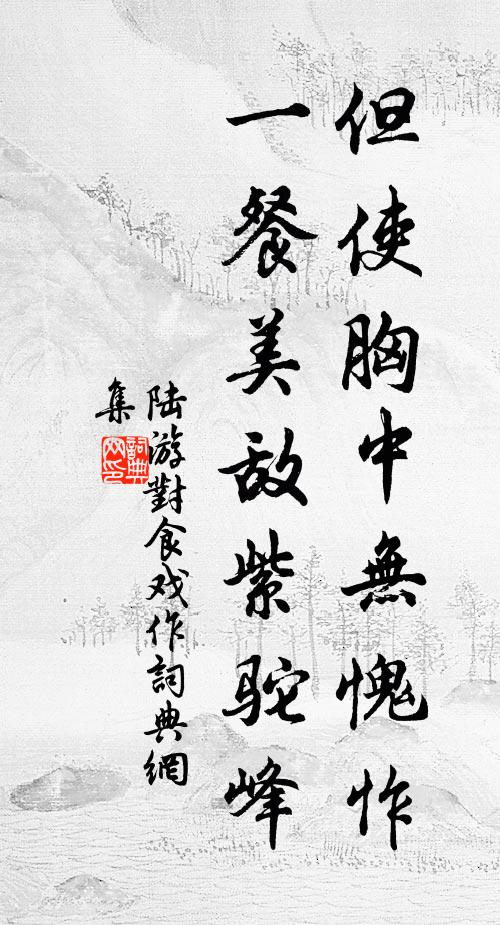 但使胸中無愧怍
一餐美敌紫駝峰
陆游對食戏作詞典網
集
詞典
网印